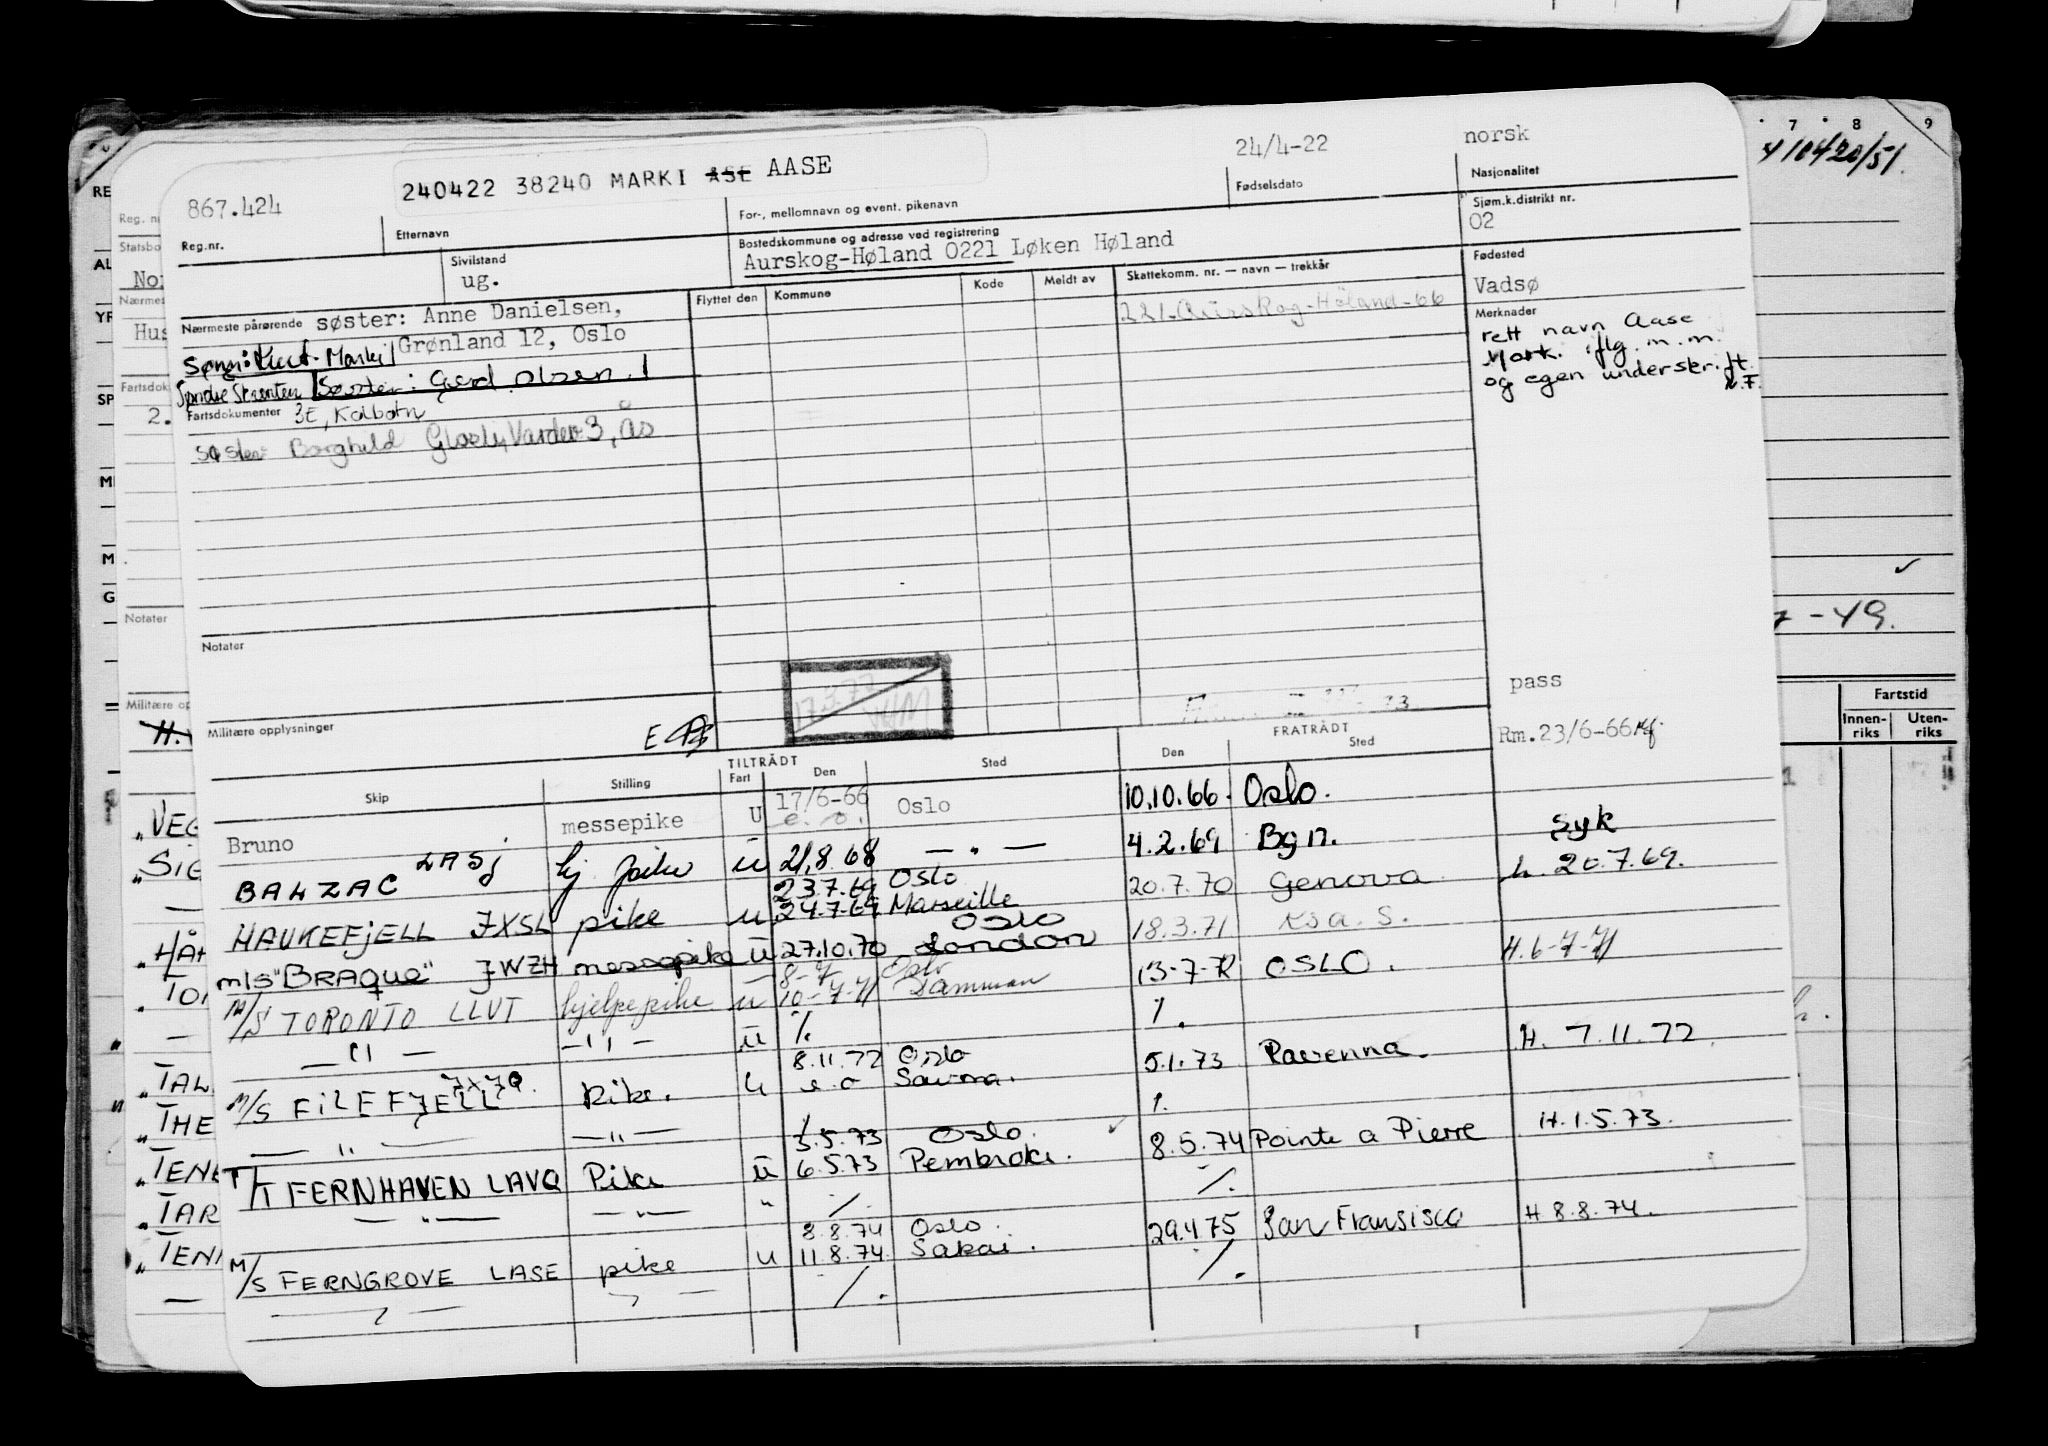 7 8 9
4/10420/51.
24/4-22
norsk
240422 38240 MARKI ASE AASE
867.424
Fødselsdato
Nasjonalitet
Reg.nr.
Etternavn
For-, mellomnavn og event. pikenavn
Sjøm.k.distrikt nr.
02
Sivilstand
ug.
Bostedskommune og adresse ved registrering
Aurskog-Høland 0221 Løken Høland
Fødested
Vadsø
Flyttet den
Kommune
Kode
Meldt av
Skattekomm. nr. — navn — trekkår
221. Aurskog-Høland-66
Merknader
rett navn Aase
Mark. iflg. m.m.
og egen underskrift.
Nærmeste pårørende søster: Anne Danielsen,
Grønland 12, Oslo
Sønn: Kurt Marki
Søndre Skrenten Søster: Gerd Olsen
3E, Kolbotn
Fartsdokumenter
søster Borghild Glosly, Varden 3, Ås
Notater
pass
Militære opplysninger
Rm.23/6-66
TILTRÅDT
FRATRÅDT
Skip
Stilling
Fart
Den
Sted
Den
Sted
Bruno messepike U 17/6-66 e. o. Oslo 10.10.66. Oslo.
BALZAC LASJ hj. pike u 21.8.68 — " — 4.2.69 Bgn. syk
HAUKEFJELL JXSL pike u 23.7.69 Oslo 24.7.69 Marseille 20.7.70 Genova h. 20.7.69.
m/s "BRAQUE" JWZH messepike u 27.10.70 Oslo London 18.3.71 Ksa. S.
M/S TORONTO LLVT hjelpepike u 8-7 Oslo 10-7-71 Damman 13-7-72 OSLO. H. 6-7-71
— " — — " — u % %
M/S FILEFJELL JXJQ. Pike. u 8.11.72 Oslo e.o Savona. 5.1.73 Ravenna. H. 7.11.72.
— " — — " — %
T/T FERNHAVEN LAVQ Pike u 3.5.73 Oslo. 6.5.73 Pembroke. 8.5.74 Pointe a Pierre H. 1.5.73.
— " — — " — " % %
M/S FERNGROVE LASE pike u 8.8.74 Oslo. 11.8.74. Sakai. 29.4.75 San Fransisco H 8.8.74.
— " — — " — % %
Reg. n
Statsbo
Nærmes
Hus
Fartsdok
2.
Notater
Militære op
Fartstid
Innen-
riks
Uten-
riks
- 49.
"VEG
"SIG
"HÅ
"TAL
"THE
"TENE
"TAR